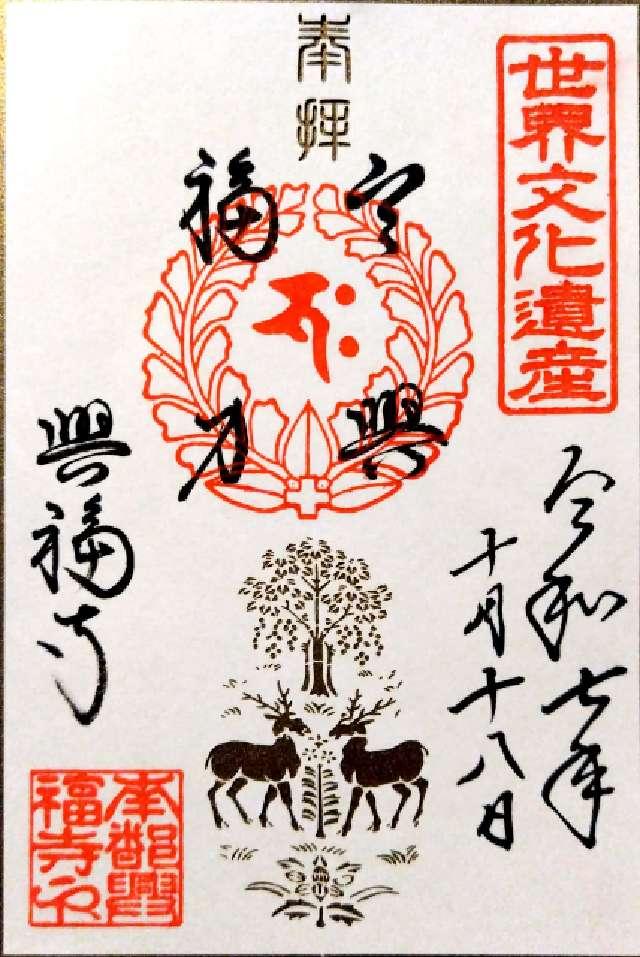 奉拝
世界文化遺産
令和七年
十月十八日
令興
福力
興福寺
南都興
福寺